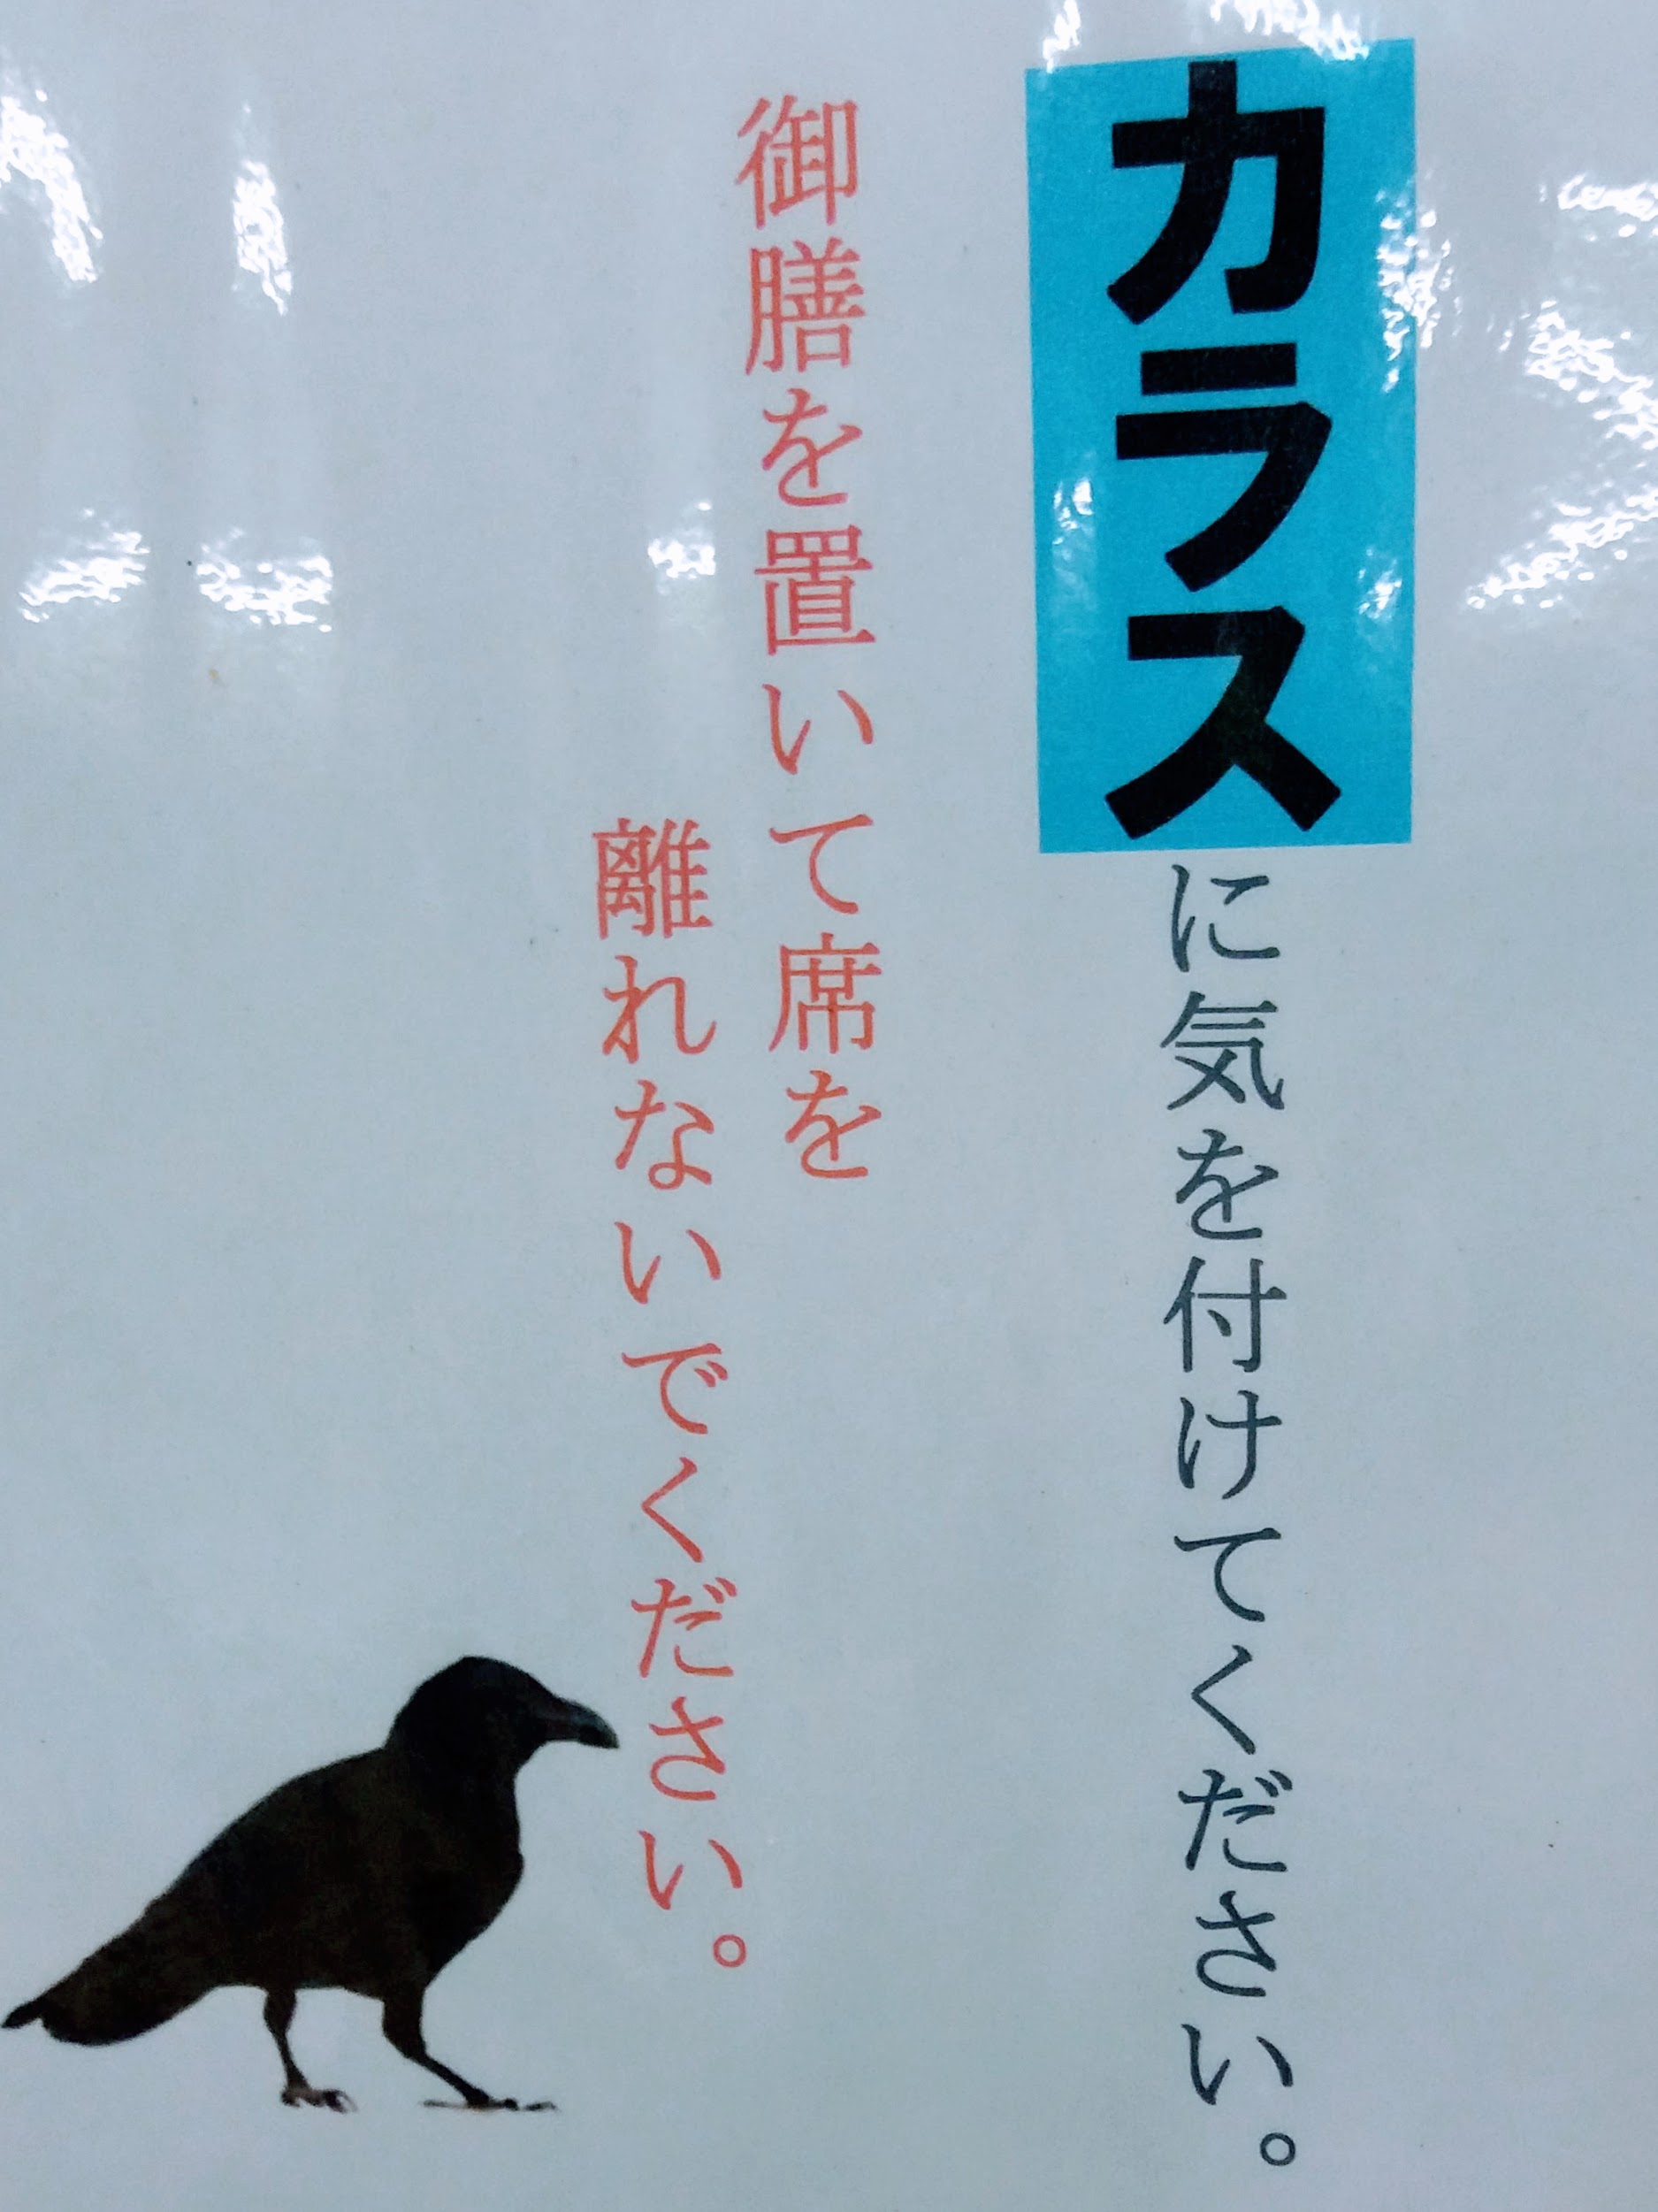 カラスに気を付けてください。
御膳を置いて席を
離れないでください。